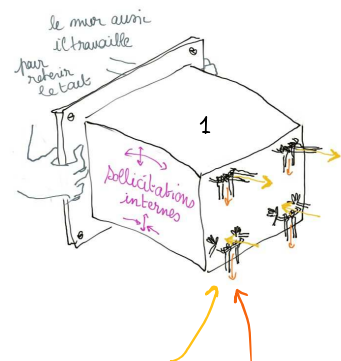 le mur aussi
il travaille
pour
retenir
le tout
1
Sollicitations
internes